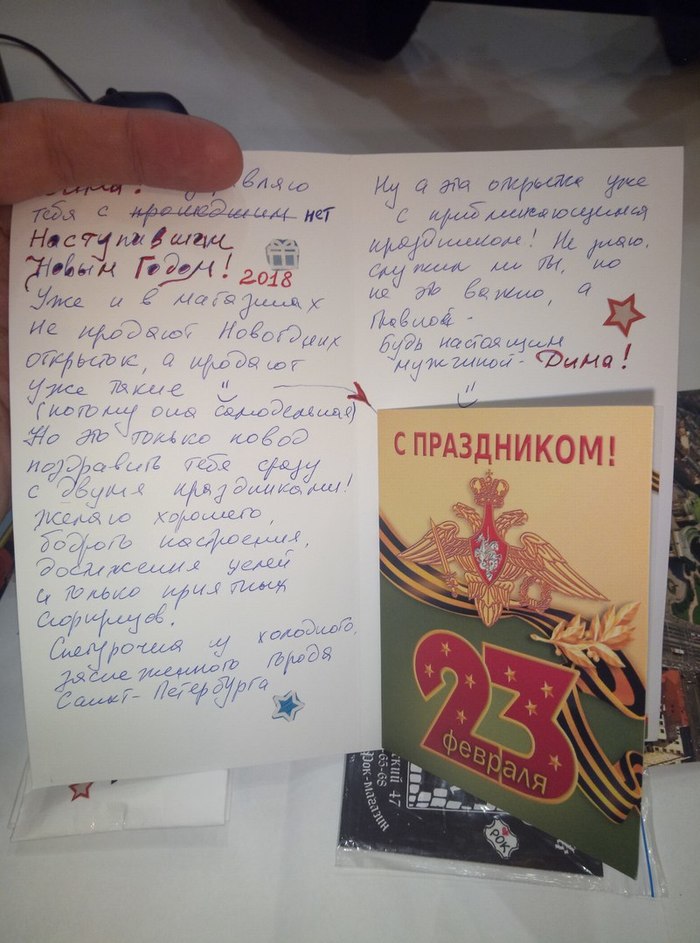 Дима! Поздравляю
тебя с прошедшим нет
Наступившим
Новым Годом! 2018
Уже и в магазинах
не продают Новогодних
открыток, а продают
уже такие
(потому она самодельная)
Но это только повод
поздравить тебя сразу
с двумя праздниками!
Желаю хорошего,
бодрого настроения,
достижения целей
и только приятных
сюрпризов.
Снегурочка из холодного,
заснеженного города
Санкт-Петербурга
Ну а эта открытка уже
с приближающимся
праздником! Не знаю,
служил ли ты, но
не это важно, а
главное -
будь настоящим
мужчиной - Дима!
С ПРАЗДНИКОМ!
23
февраля
47
65-68
Рок-магазин
РОК